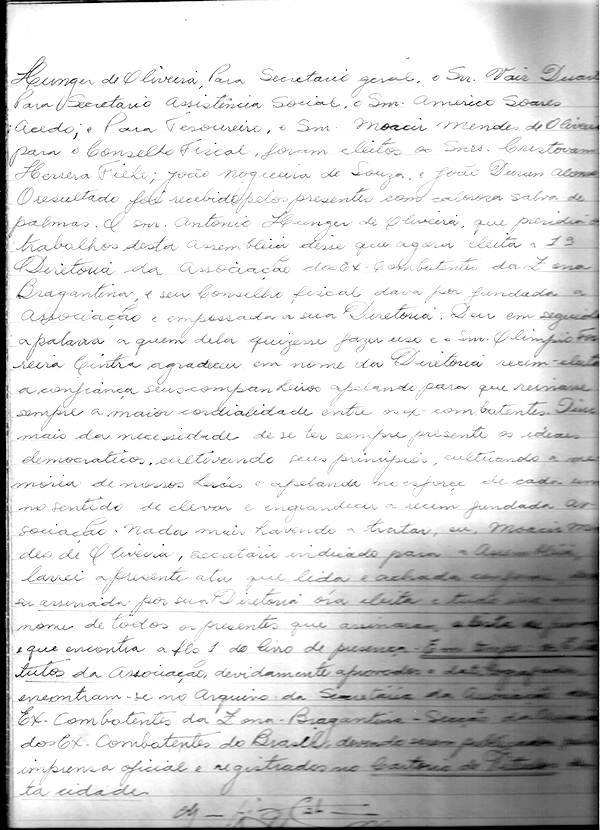 Hunger de Oliveira, Para Secretario geral, o Snr. Vair Duart
Para Secretario Assistência Social, o Snr. Americo Soares
Acedo; e Para Tesoureiro, o Snr. Moacir Mendes de Oliveira
para o Conselho Fiscal, foram eleitos os Snrs. Cristovam
Herrera Fiele; João nogueira de Souza, e João Duran Alonso
O resultado foi recebido pelos presentes com calorosa salva de
palmas. O snr. Antonio Hunger de Oliveira, que presidia os
trabalhos desta Assembleia disse que agora eleita a 1ª
Diretoria da Associação dos Ex-Combatentes da Zona
Bragantina, e seu Conselho fiscal dava por fundada a
Associação e empossada a sua Diretoria. Deu em seguida
a palavra a quem dela quizesse fazer uso e o Snr. Olimpio Fer
reira Cintra agradeceu em nome da Diretoria recem-eleita
a confiança seus companheiros apelando para que reinasse
sempre a maior cordialidade entre os ex-combatentes. Disse
mais da necessidade de se ter sempre presente os ideaes
democraticos, cultivando seus principios, cultuando a me
mória de nossos heróes e apelando no esforço de cada um
no sentido de elevar e engrandecer a recem fundada As
sociação. Nada mais havendo a tratar, eu, Moacir Men
des de Oliveira, secretário indicado para a Assembleia,
lavrei a presente ata que lida e achada conforme
ser assinada por sua Diretoria óra eleita e
nome de todos os presentes que assinaram a lista de
e que encontra a fls 1 do livro de presença. Em tempo - os Esta
tutos da Associação, devidamente aprovados
encontram-se no Arquivo da Secretaria da Associação dos
Ex-Combatentes da Zona-Bragantina - Secção da
dos Ex-Combatentes do Brasil, devendo serem publicados pela
imprensa oficial e registrados no Cartorio de Titulos des
ta cidade